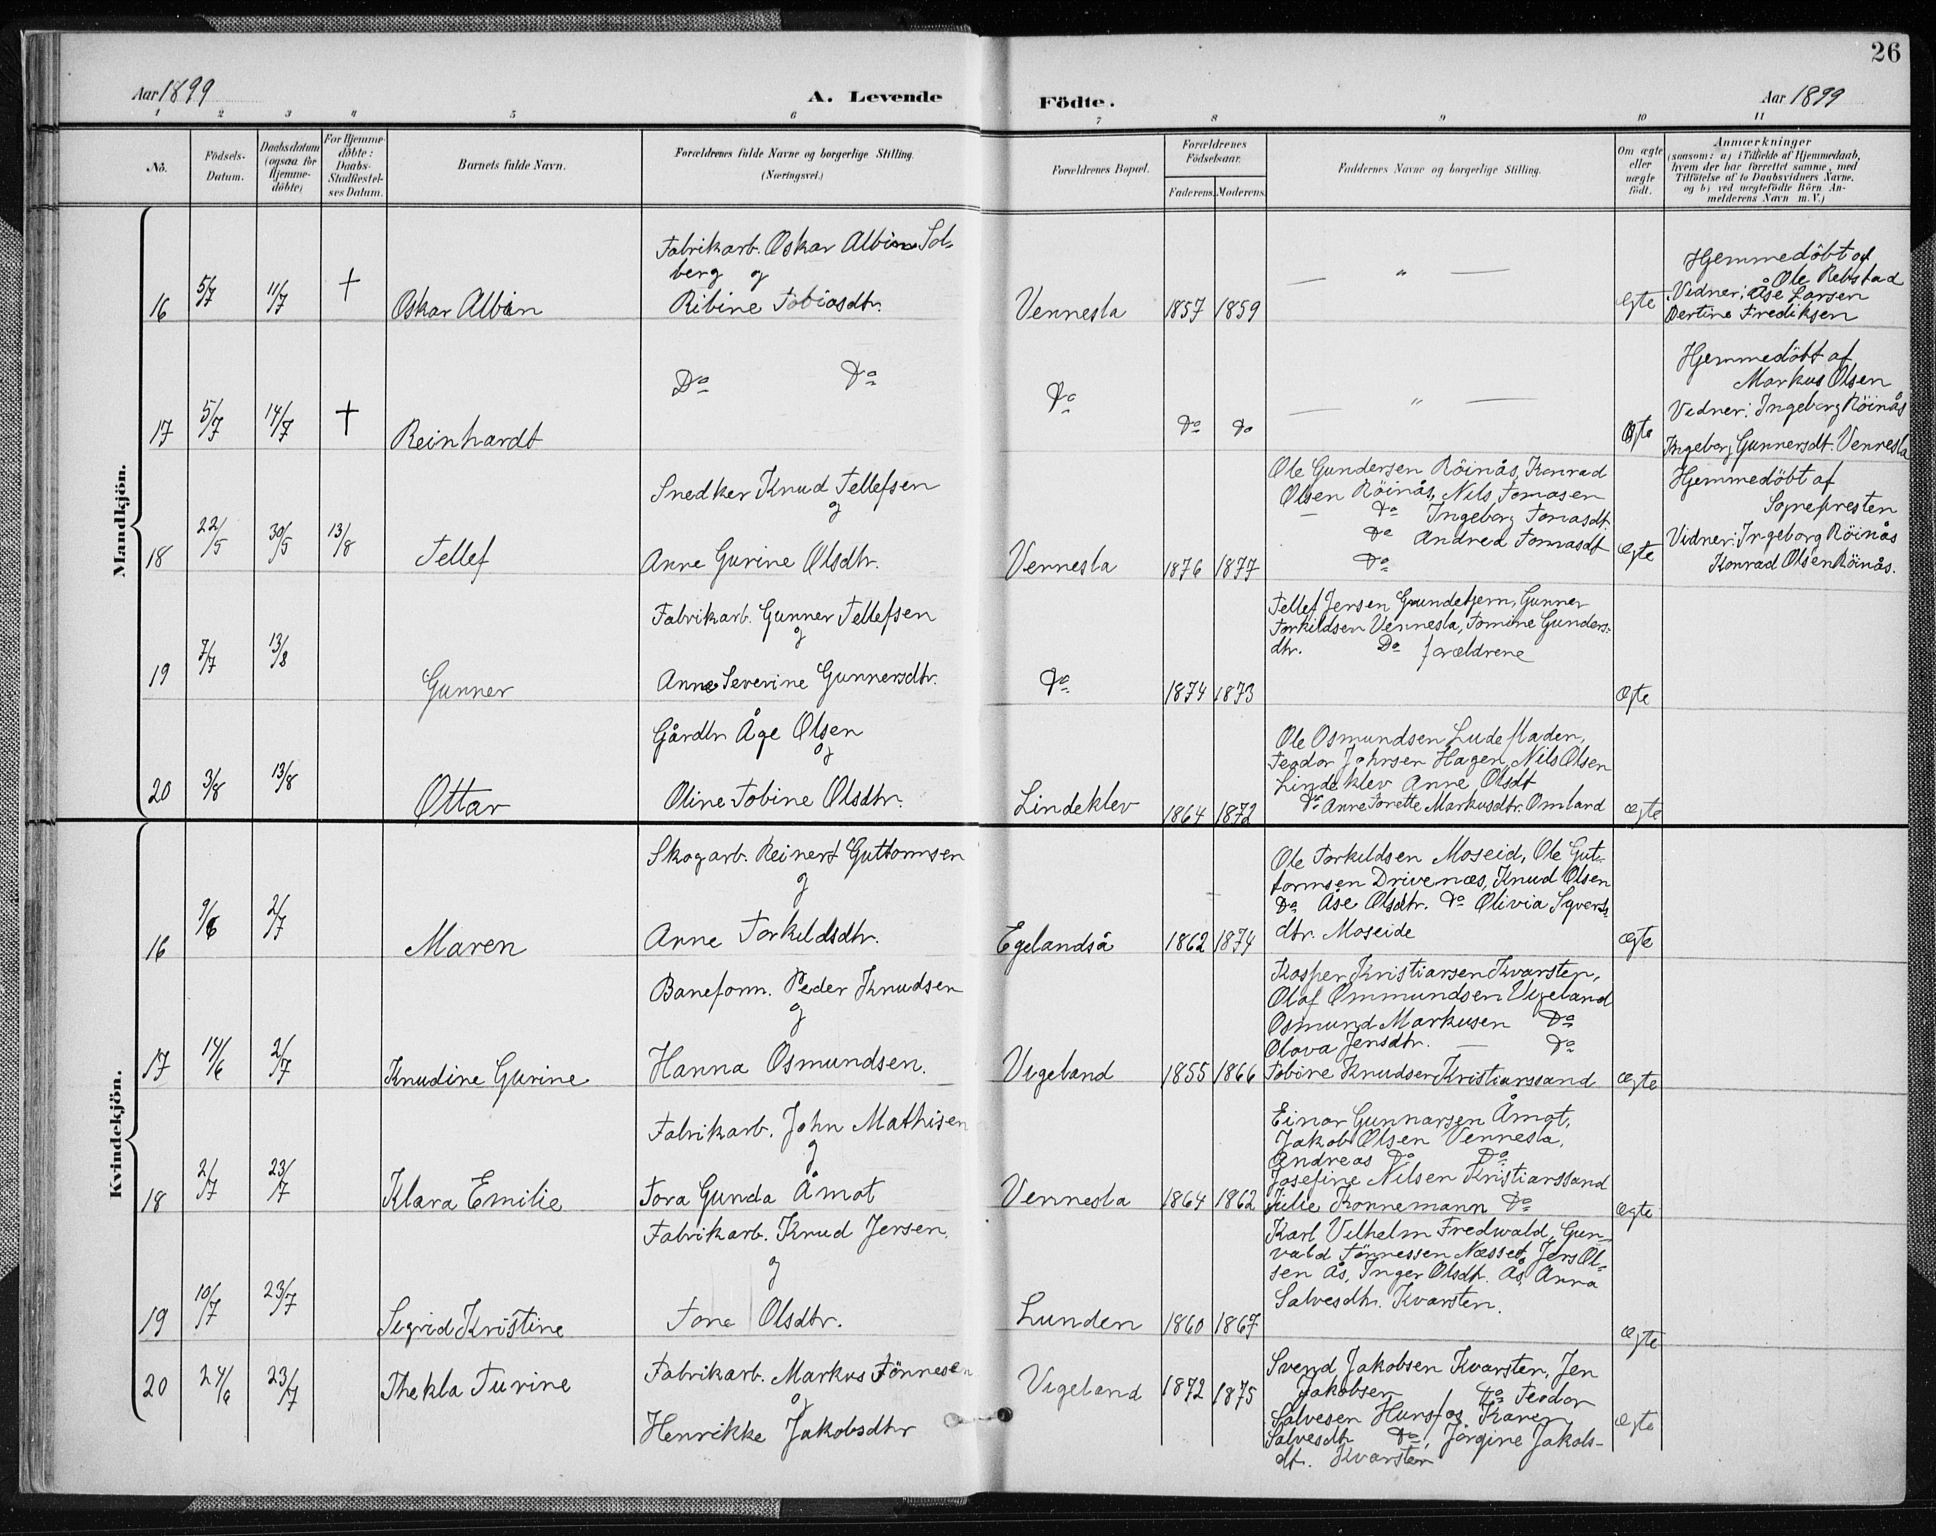 26
Aar 1899
A. Levende Födte.
Aar 1899
1 2 3 4 5 6 7 8 9 10 11
No.
Födsels-
Datum.
Daabsdatum
(ogsaa for
Hjemme-
döbte)
For Hjemme-
döbte:
Daabs-
Stadfæstel-
ses Datum.
Barnets fulde Navn.
Forældrenes fulde Navne og borgerlige Stilling.
(Næringsvei.)
Forældrenes Bopæl.
Forældrenes
Födselsaar.
Faderens. Moderens.
Faddernes Navne og borgerlige Stilling.
Om ægte
eller
uægte
födt.
Anmærkninger
(saasom: a) i Tilfælde af Hjemmedaab,
hvem der har forrettet samme, med
Tilföielse af to Daabsvidners Navne.
og b) ved uægtefödte Börn An-
melderens Navn m. V.)
Mandkjön.
16 5/7 11/7 † Oskar Albin
Fabrikarb. Oskar Albin Sol-
berg og
Ribine Tobiasdtr.
Vennesla 1857 1859
— " —
ægte
Hjemmedöbt af
Ole Rebstad
Vidner: Åse Larsen
Bertine Frediksen
17 5/7 14/7 † Reinhardt
Do Do
Do
Do Do
— " —
ægte
Hjemmedöbt af
Markus Olsen
Vedner: Ingeborg Röinås
Ingeborg Gunnersdt. Vennesla
18 22/5 30/5 13/8 Tellef
Snedker Knud Tellefsen
og
Anne Gurine Olsdtr.
Vennesla 1876 1877
Ole Gundersen Röinås, Konrad
Olsen Röinås, Nils Tomasen
— Do Ingeborg Tomasdt.
Do Andrea Tomasdt
Do
ægte
Hjemmedöbt af
Sognepresten
Vidner: Ingeborg Röinås
Konrad Olsen Röinås.
19 7/7 13/8 Gunner
Fabrikarb. Gunner Tellefsen
og
Anne Severine Gunnersdtr.
Do 1874 1873
Tellef Jensen Grundetjern, Gunner
Torkildsen Vennesla, Tomine Gunders-
dtr. Do forældrene
ægte
20 3/8 13/8 Ottar
Gårdbr Åge Olsen
og
Oline Tobine Olsdtr.
Lindeklev 1864 1872
Ole Osmundsen Ludefladen,
Teodor Johnsen Hagen, Nils Olsen
Lindeklev Anne Olsdt
Do Anne Torette Markusdtr. Omland
ægte
Kvindekjön.
16 9/6 2/7 Maren
Skogarb. Reinert Guttormsen
og
Anne Torkildsdtr.
Egelandså 1862 1874
Ole Torkildsen Moseid, Ole Gut-
tormsen Drivenæs, Knud Olsen
Do Åse Olsdtr. Do Olivia Sqverds
dtr. Moseide
ægte
17 14/6 2/7 Knudine Gurine
Baneform. Peder Knudsen
og
Hanna Osmundsen.
Vigeland 1855 1866
Kasper Kristiansen Kvarsten,
Olaf Ommundsen Vigeland
Osmund Markusen Do
Olava Jensdtr. — Do
Tobine Knudsen Kristianssand
ægte
18 2/7 23/7 Klara Emilie
Fabrikarb. John Mathisen
og
Tora Gunda Åmot
Vennesla 1864 1862
Einar Gunnarsen Åmot,
Jakob Olsen Vennesla,
Andreas Do Do
Josefine Nilsen Kristianssand
Julie Konnemann Do
ægte
19 10/7 23/7 Sigrid Kristine
Fabrikarb. Knud Jensen
og
Tone Olsdtr.
Lunden 1860 1867
Karl Vilhelm Fredwald, Gun-
vald Tönnessen Næsset, Jens Ol-
sen Ås, Inger Olsdt. Ås Anna
Salvesdtr. Kvarsten.
ægte
20 24/6 23/7 Thekla Turine
Fabrikarb. Markus Tönnesen
og
Henrikke Jakobsdtr
Vigeland 1872 1875
Svend Jakobsen Kvarsten, Jen
Jakobsen Do Teodor
Salvesen Hunsfos Karen
Salvesdt Do, Jörgine Jakobs-
dt. Kvarsten
ægte